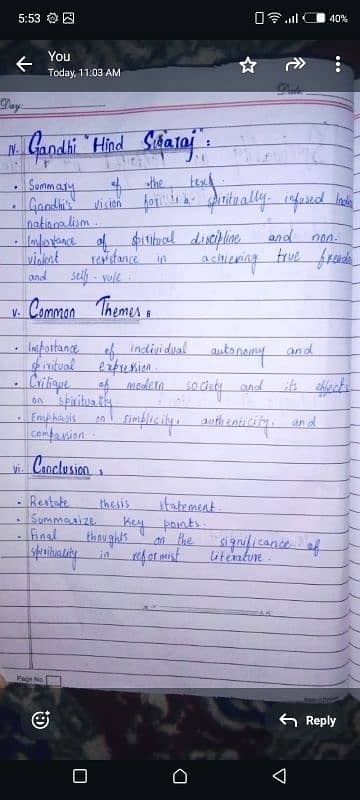 5:53
40%
You
Today, 11:03 AM
Date:
Day:
IV. Gandhi "Hind Swaraj":
• Summary of the text.
• Gandhi's vision for a spiritually-infused
nationalism.
• Importance of spiritual discipline and non-
violent resistance in achieving true
and self-rule.
V. Common Themes:
• Importance of individual autonomy and
spiritual expression.
• Critique of modern society and its effects
on spirituality
• Emphasis on simplicity, authenticity, and
compassion.
vi. Conclusion:
• Restate thesis statement.
• Summarize key points.
• Final thoughts on the significance of
spirituality in reformist literature.
Page No.
Reply